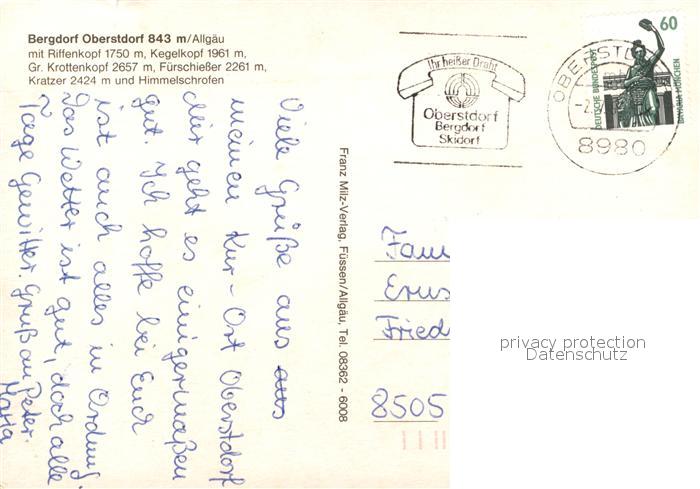 Bergdorf Oberstdorf 843 m/Allgäu
mit Riffenkopf 1750 m, Kegelkopf 1961 m,
Gr. Krottenkopf 2657 m, Fürschießer 2261 m,
Kratzer 2424 m und Himmelschrofen
Viele Grüße aus aus
meinem Kur-Ort Oberstdorf
mir geht es einigermaßen
gut. Ich hoffe bei Euch
ist auch alles in Ordnung.
Das Wetter ist gut, doch alle
Tage Gewitter. Gruß an Peter.
Maria
Franz Milz-Verlag, Füssen/Allgäu, Tel. 08362 - 6008
Ihr heißer Draht
Oberstdorf
Bergdorf
Skidorf
8980
60
DEUTSCHE BUNDESPOST
BAVARIA MÜNCHEN
Fam
Erns
Fried
8505
privacy protection
Datenschutz